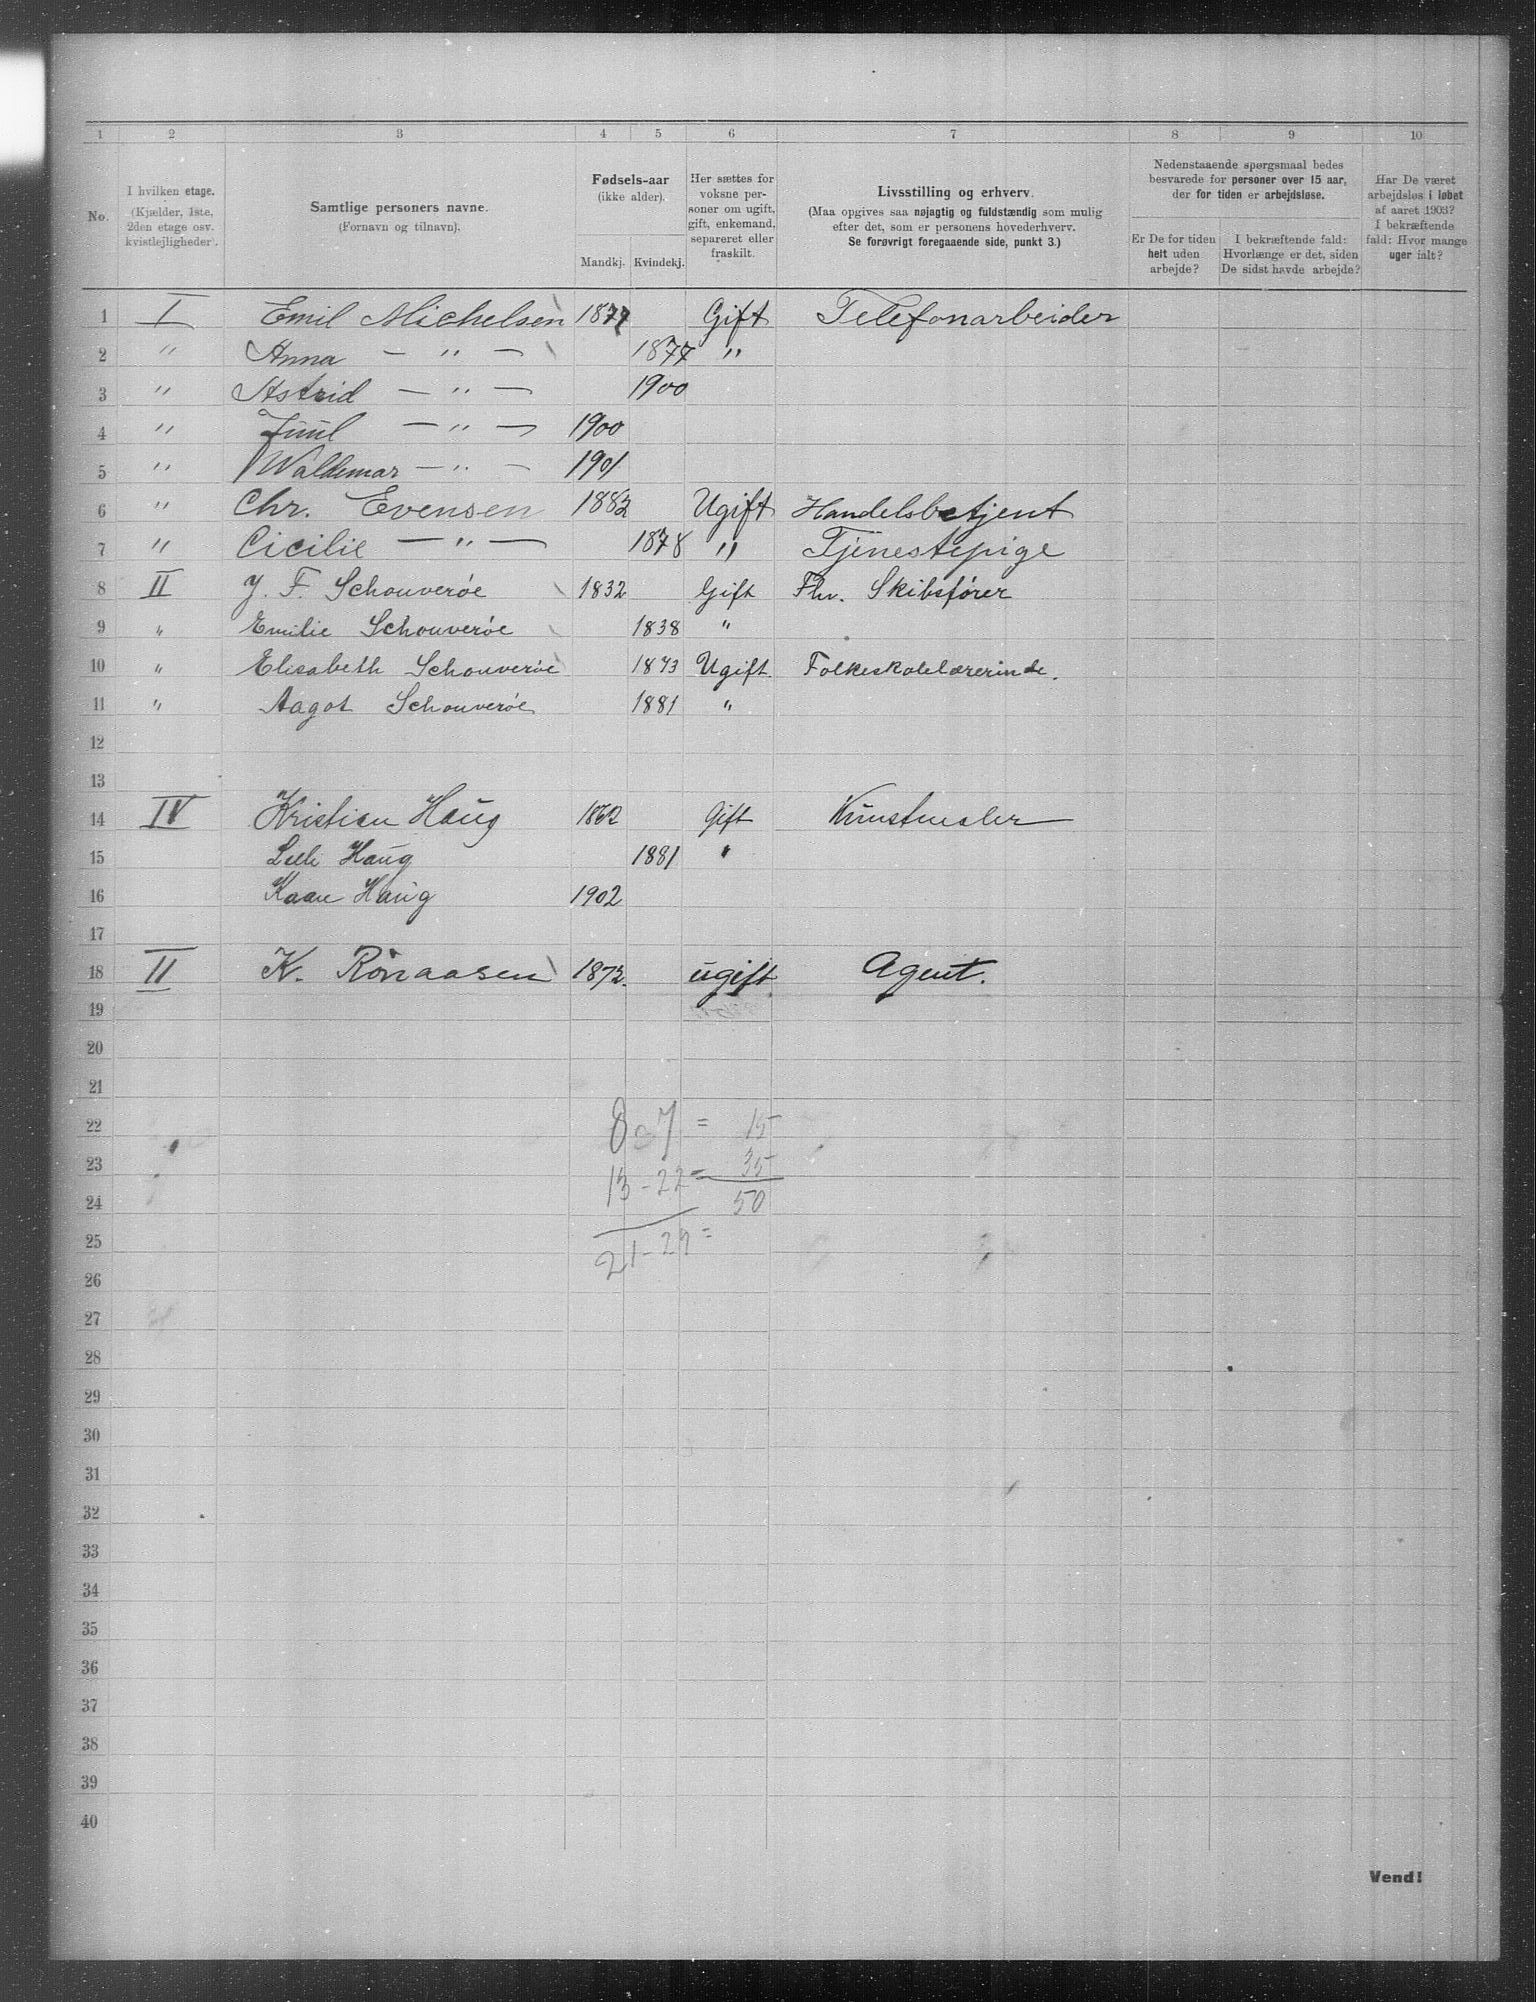 1 2 3 4 5 6 7 8 9 10
No.
I hvilken etage.
(Kjælder, 1ste,
2den etage osv.
kvistlejligheder).
Samtlige personers navne.
(Fornavn og tilnavn).
Fødsels-aar
(ikke alder).
Mandkj. Kvindekj.
Her sættes for
voksne per-
soner om ugift,
gift, enkemand,
separeret eller
fraskilt.
Livsstilling og erhverv.
(Maa opgives saa nøjagtig og fuldstændig som mulig
efter det, som er personens hovederhverv.
Se forøvrigt foregaaende side, punkt 3.)
Nedenstaaende spørgsmaal bedes
besvarede for personer over 15 aar,
der for tiden er arbejdsløse.
Er De for tiden
helt uden
arbejde?
I bekræftende fald:
Hvorlænge er det, siden
De sidst havde arbejde?
Har De været
arbejdsløs i løbet
af aaret 1903?
I bekræftende
fald: Hvor mange
uger ialt?
1 I Emil Michelsen 1877 Gift Telefonarbeider
2 " Anna — " — 1877 "
3 " Astrid — " — 1900
4 " Juul — " — 1900
5 " Waldemar — " — 1901
6 " Chr. Evensen 1883 Ugift Handelsbetjent
7 " Cicilie — " — 1878 " Tjenestepige
8 II J. F. Schouverøe 1832 Gift Fhv. Skibsfører
9 " Emilie Schouverøe 1838 "
10 " Elisabeth Schouverøe 1873 Ugift Folkeskolelærerinde.
11 " Aagot Schouverøe 1881 "
12
13
14 IV Kristian Haug 1862 Gift Kunstmaler
15 Haug 1881 "
16 Kaare Haug 1902
17
18 II K. Rønaasen 1872. ugift Agent.
19
20
21
22 8 - 7 = 15
23 13 - 22 = 35
24 50
25 21 - 29 =
26
27
28
29
30
31
32
33
34
35
36
37
38
39
40
Vend!